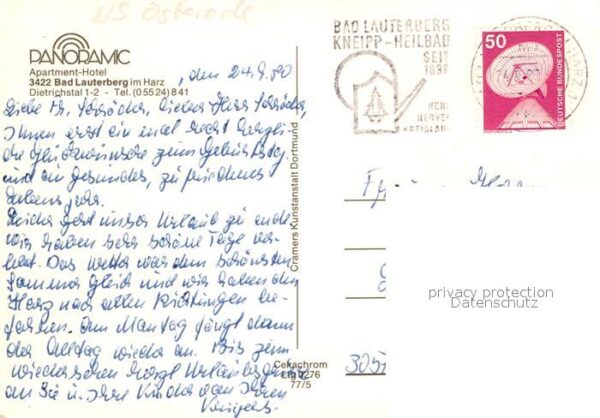 NS Osterode
PANORAMIC
Apartment-Hotel
3422 Bad Lauterberg im Harz
Dietrichstal 1-2 - Tel. (05524) 841
, den 24.9.80
Liebe Fr. liebes Herr
Ihnen erst ein mal recht herzli-
che Glückwünsche zum Geburtstag
und ein gesundes, zufriedenes
Lebensjahr.
Leider geht unser Urlaub zu ende
wir haben sehr schöne Tage ver-
lebt. Das Wetter war dem schönsten
Sommer gleich und wir haben den
Harz nach allen Richtungen be-
fahren. Am Montag fängt dann
der Alltag wieder an. Bis zum
wiedersehen herzl. Urlaubsgrüße
an Sie u. Ihre Kinder von Ihren
Cramers Kunstanstalt Dortmund
Cekachrom
77/5
BAD LAUTERBERG
KNEIPP-HEILBAD
SEIT
HERZ
NERVE
KREISLAUF
50
DEUTSCHE BUNDESPOST
privacy protection
Datenschutz
305